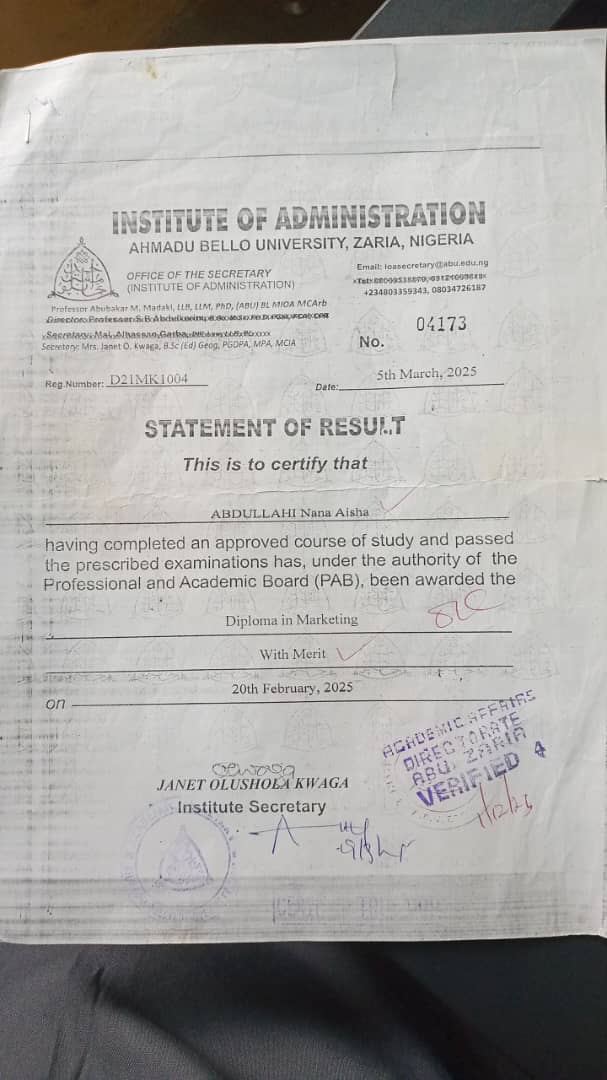 INSTITUTE OF ADMINISTRATION
AHMADU BELLO UNIVERSITY, ZARIA, NIGERIA
OFFICE OF THE SECRETARY
(INSTITUTE OF ADMINISTRATION)
Email: ioasecretary@abu.edu.ng
+234803359343, 08034726187
Professor Abubakar M, Madaki, LLB, LLM, PhD, (ABU) BL MIOA MCArb
Secretary: Mrs. Janet O. Kwaga, B.Sc (Ed) Geog, PGDPA, MPA, MCIA
No. 04173
Reg.Number: D21MK1004
Date: 5th March, 2025
STATEMENT OF RESULT
This is to certify that
ABDULLAHI Nana Aisha
having completed an approved course of study and passed
the prescribed examinations has, under the authority of the
Professional and Academic Board (PAB), been awarded the
Diploma in Marketing
With Merit
on 20th February, 2025
ACADEMIC AFFAIRS
DIRECTORATE
ABU, ZARIA
VERIFIED 4
JANET OLUSHOLA KWAGA
Institute Secretary